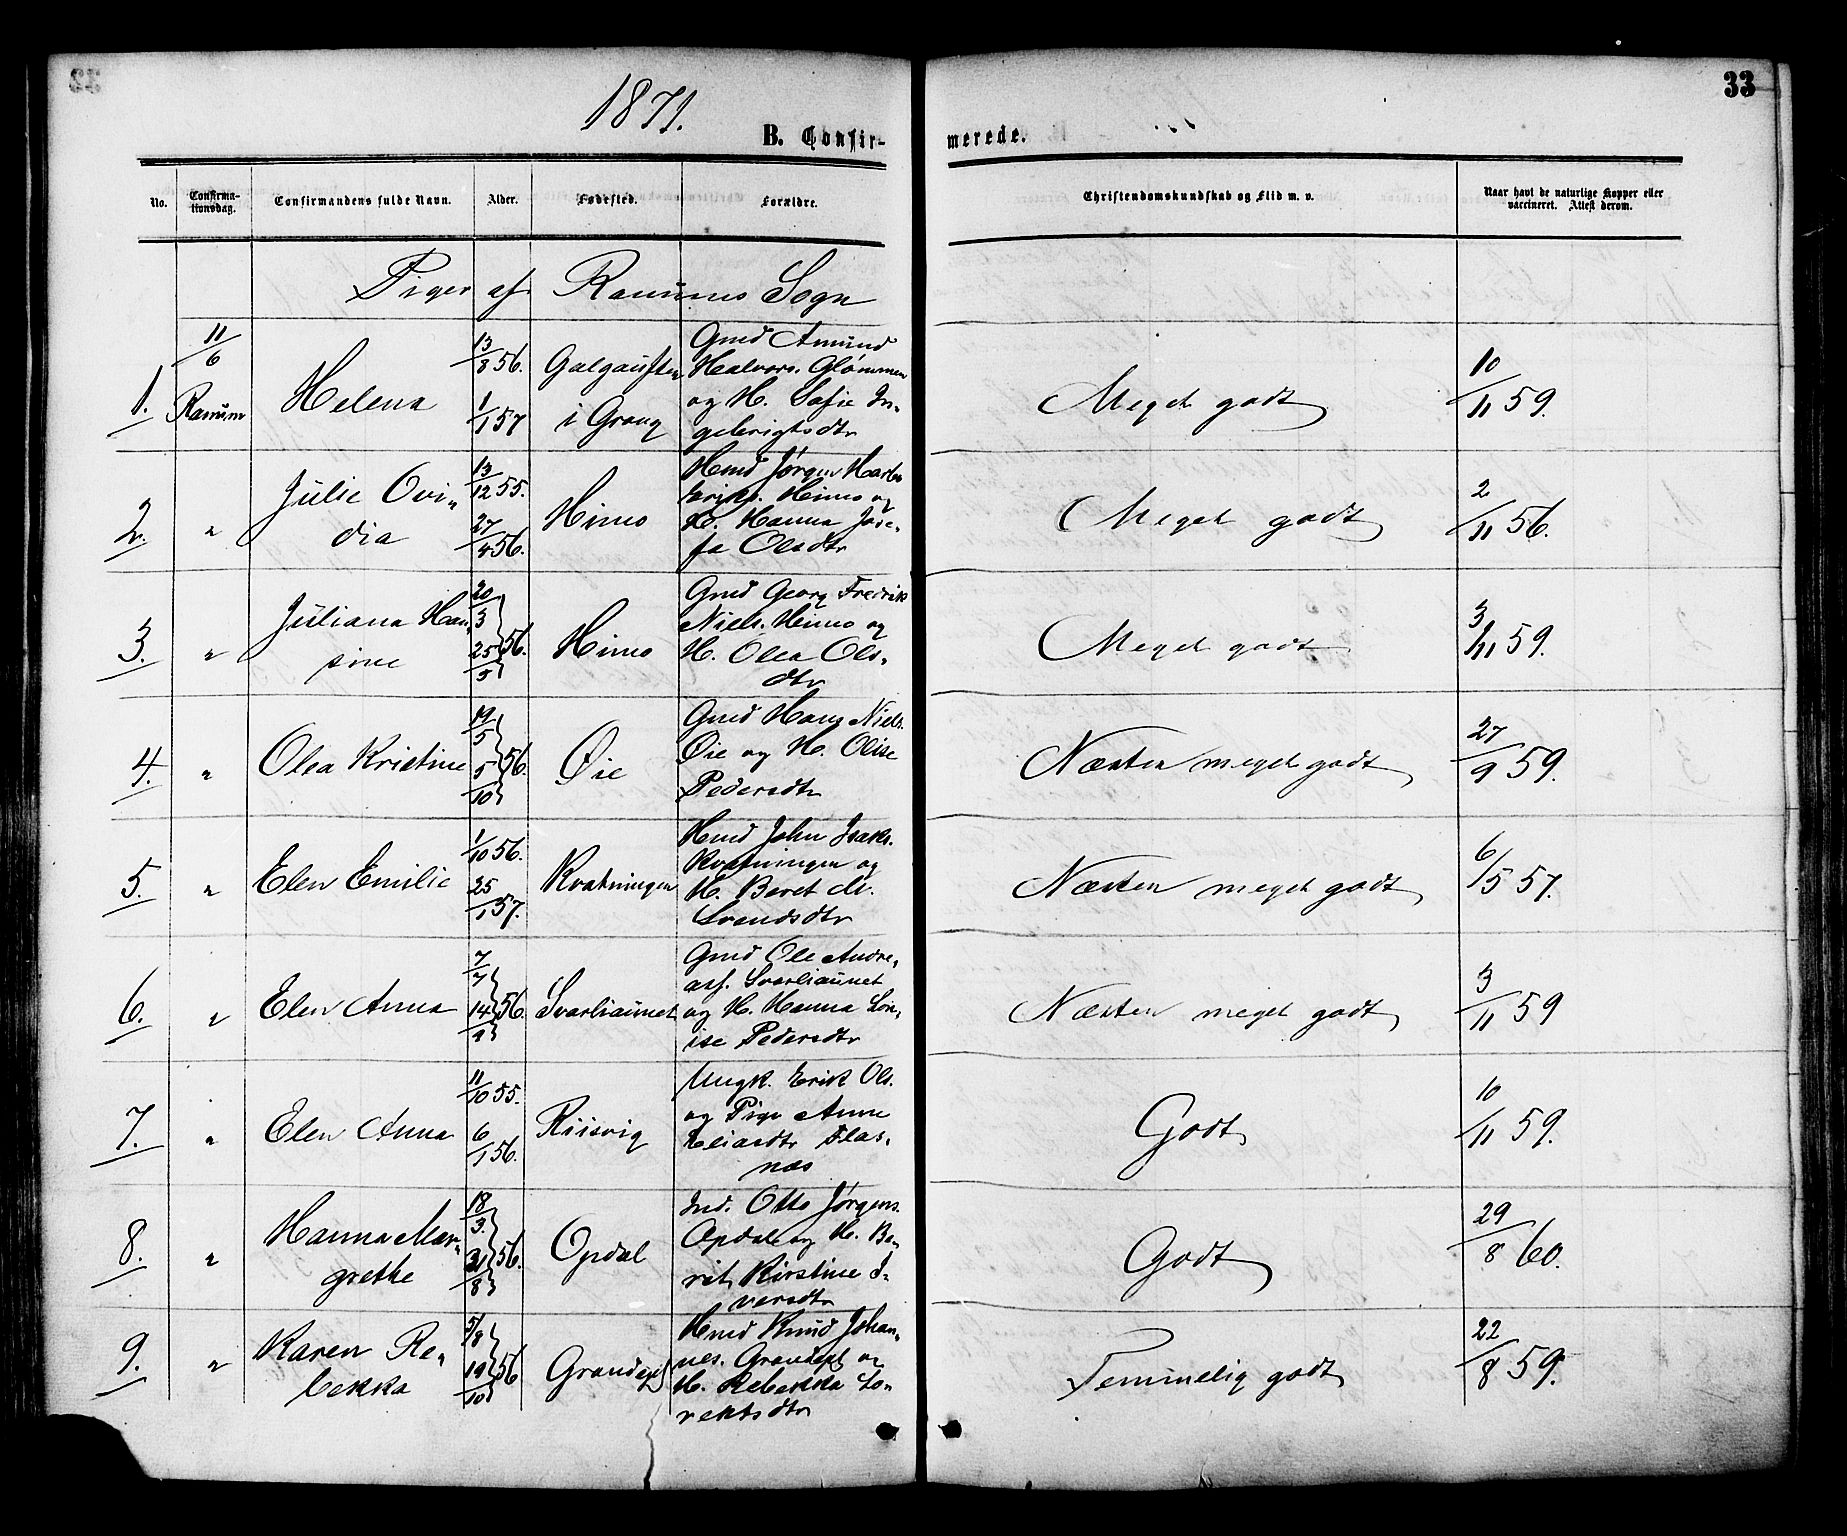 33
1871.
B. Confir- merede.
No. Confirma-tionsdag. Confirmandens fulde Navn. Alder. Fødested. Forældre. Christendomskundskab og Flid m. v. Naar havt de naturlige Kopper eller vaccineret. Attest derom.
Piger af Ranums Sogn
1. 11/6 Ranum Helena 13/8 56. 1/1 57 i Grong
Gmd Amund
Halvors. Glømmen
og H. Sofie In-
gebrigtsdtr
Meget godt 10/11 59.
2. " Julie Ovi-
dia 13/12 55. 27/4 56. Himo
Hmd Jørgen
Himo og
H. Hanna Jose-
fa Olsdtr
Meget godt 2/11 56.
3. " Juliana Han-
sine 20/3 25/5 56. Himo
Gmd Georg Fredrik
Niels. Himo og
H. Olea Ols-
dtr
Meget godt 3/11 59.
4. " Olea Kristine 19/5 5/10 56. Øie
Gmd Hans Niels.
Øie og H. Olise
Pedersdtr
Næsten meget godt 27/9 59.
5. " Elen Emilie 1/10 56. 25/1 57. Kvatningen
Hmd John Isaks.
Kvatningen og
H. Beret M.
Svendsdtr
Næsten meget godt 6/5 57.
6. " Elen Anna 7/7 14/9 56. Svarliaunet
Gmd Ole Andre-
asf. Svarliaunet
og H. Hanna Lov-
ise Pedersdtr
Næsten meget godt 3/11 59
7. " Elen Anna 11/10 55. 6/1 56. Riisvig
Ungk. Erik Ols.
og Pige Anne
Eliasdtr Flas-
næs
Godt 10/11 59.
8. " Hanna Mar-
grethe 18/3 31/8 56. Opdal
Ind. Otto Jørgens.
Opdal og H. Be-
rit Kirstine I-
versdtr
Godt 29/8 60.
9. " Karen Re-
bekka 5/8 19/10 56
Hmd Knud Johan-
nes. og
H. Rebekka Lo-
rentsdtr
Temmelig godt 22/8 59.